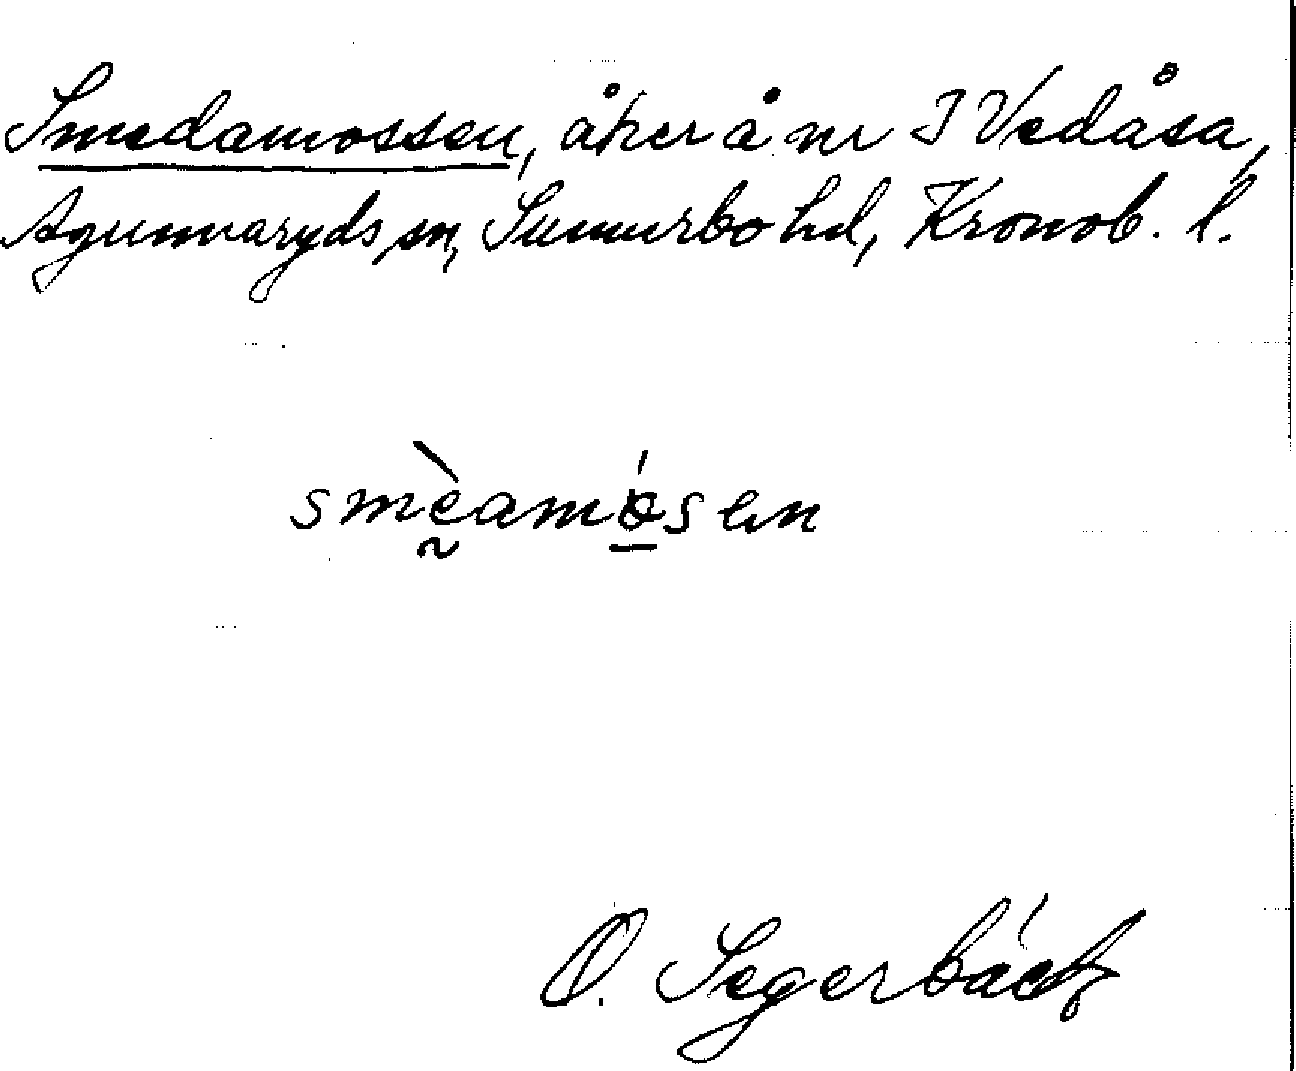 Smedamossen, åker å nr I Vedåsa,
Agunnaryds sn, Sunnerbo hd, Kronob. l.
smèamósen
O. Segerbäck